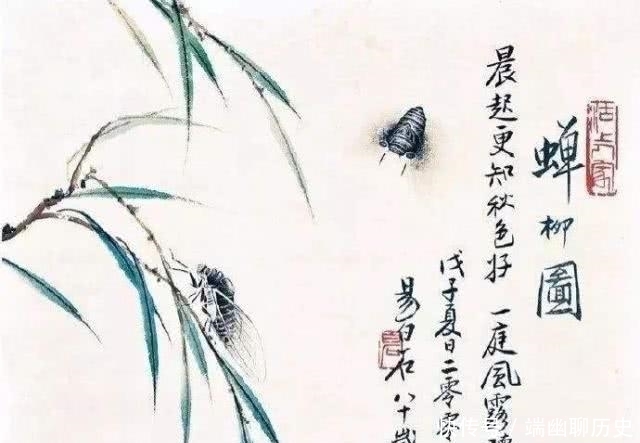 蝉柳圖
晨起更知秋色好 一庭風露
戊子夏日二零零
易白石八十歲
快传号/端幽聊历史